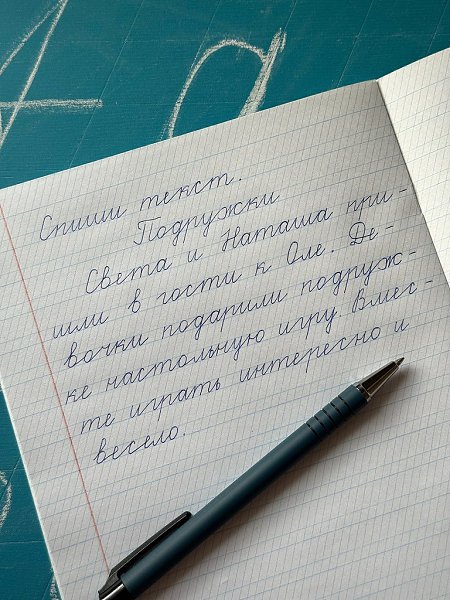 Спиши текст.
Подружки
Света и Наташа при-
шли в гости к Оле. Де-
вочки подарили подруж-
ке настольную игру. Вмес-
те играть интересно и
весело.